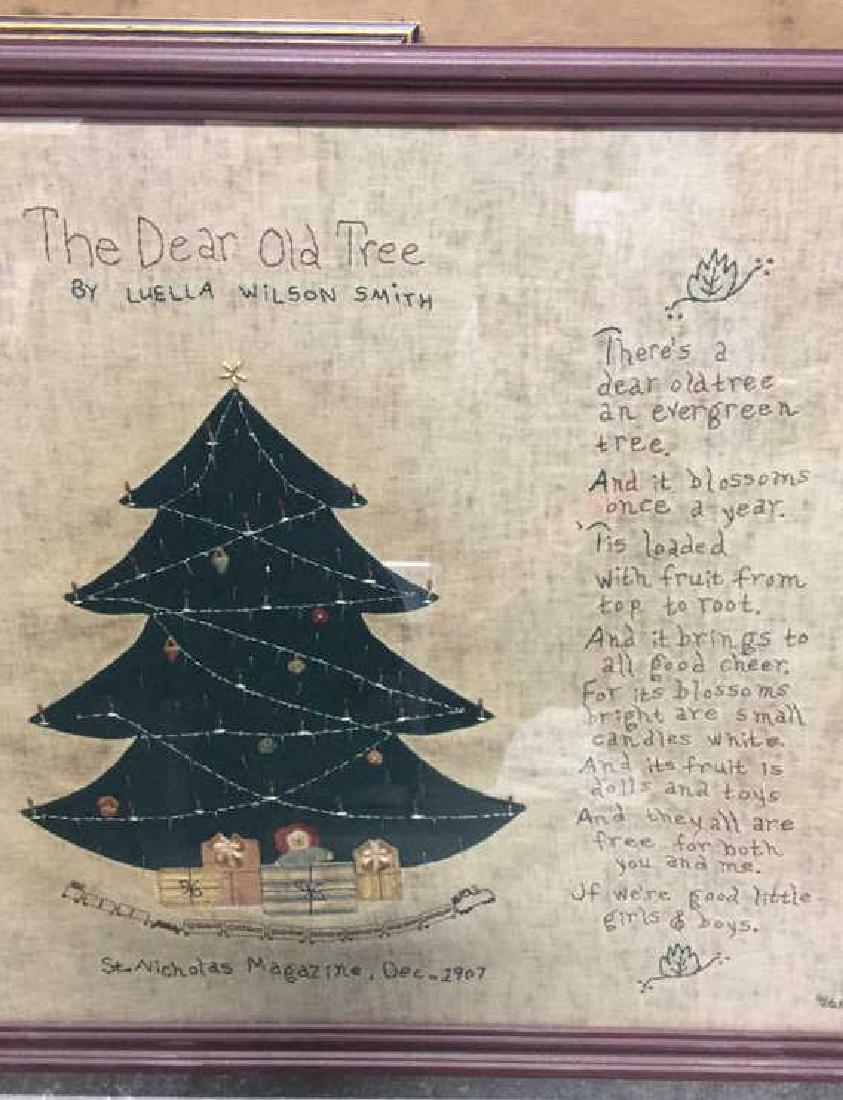 The Dear Old Tree
BY LUELLA WILSON SMITH
There's a
dear old tree
an evergreen
tree.
And it blossoms
once a year.
'Tis loaded
with fruit from
top to root.
And it brings to
all good cheer.
For its blossoms
bright are small
candles white.
And its fruit is
dolls and toys
And they all are
free for both
you and me.
If we're good little
girls & boys.
St. Nicholas Magazine, Dec. 1907